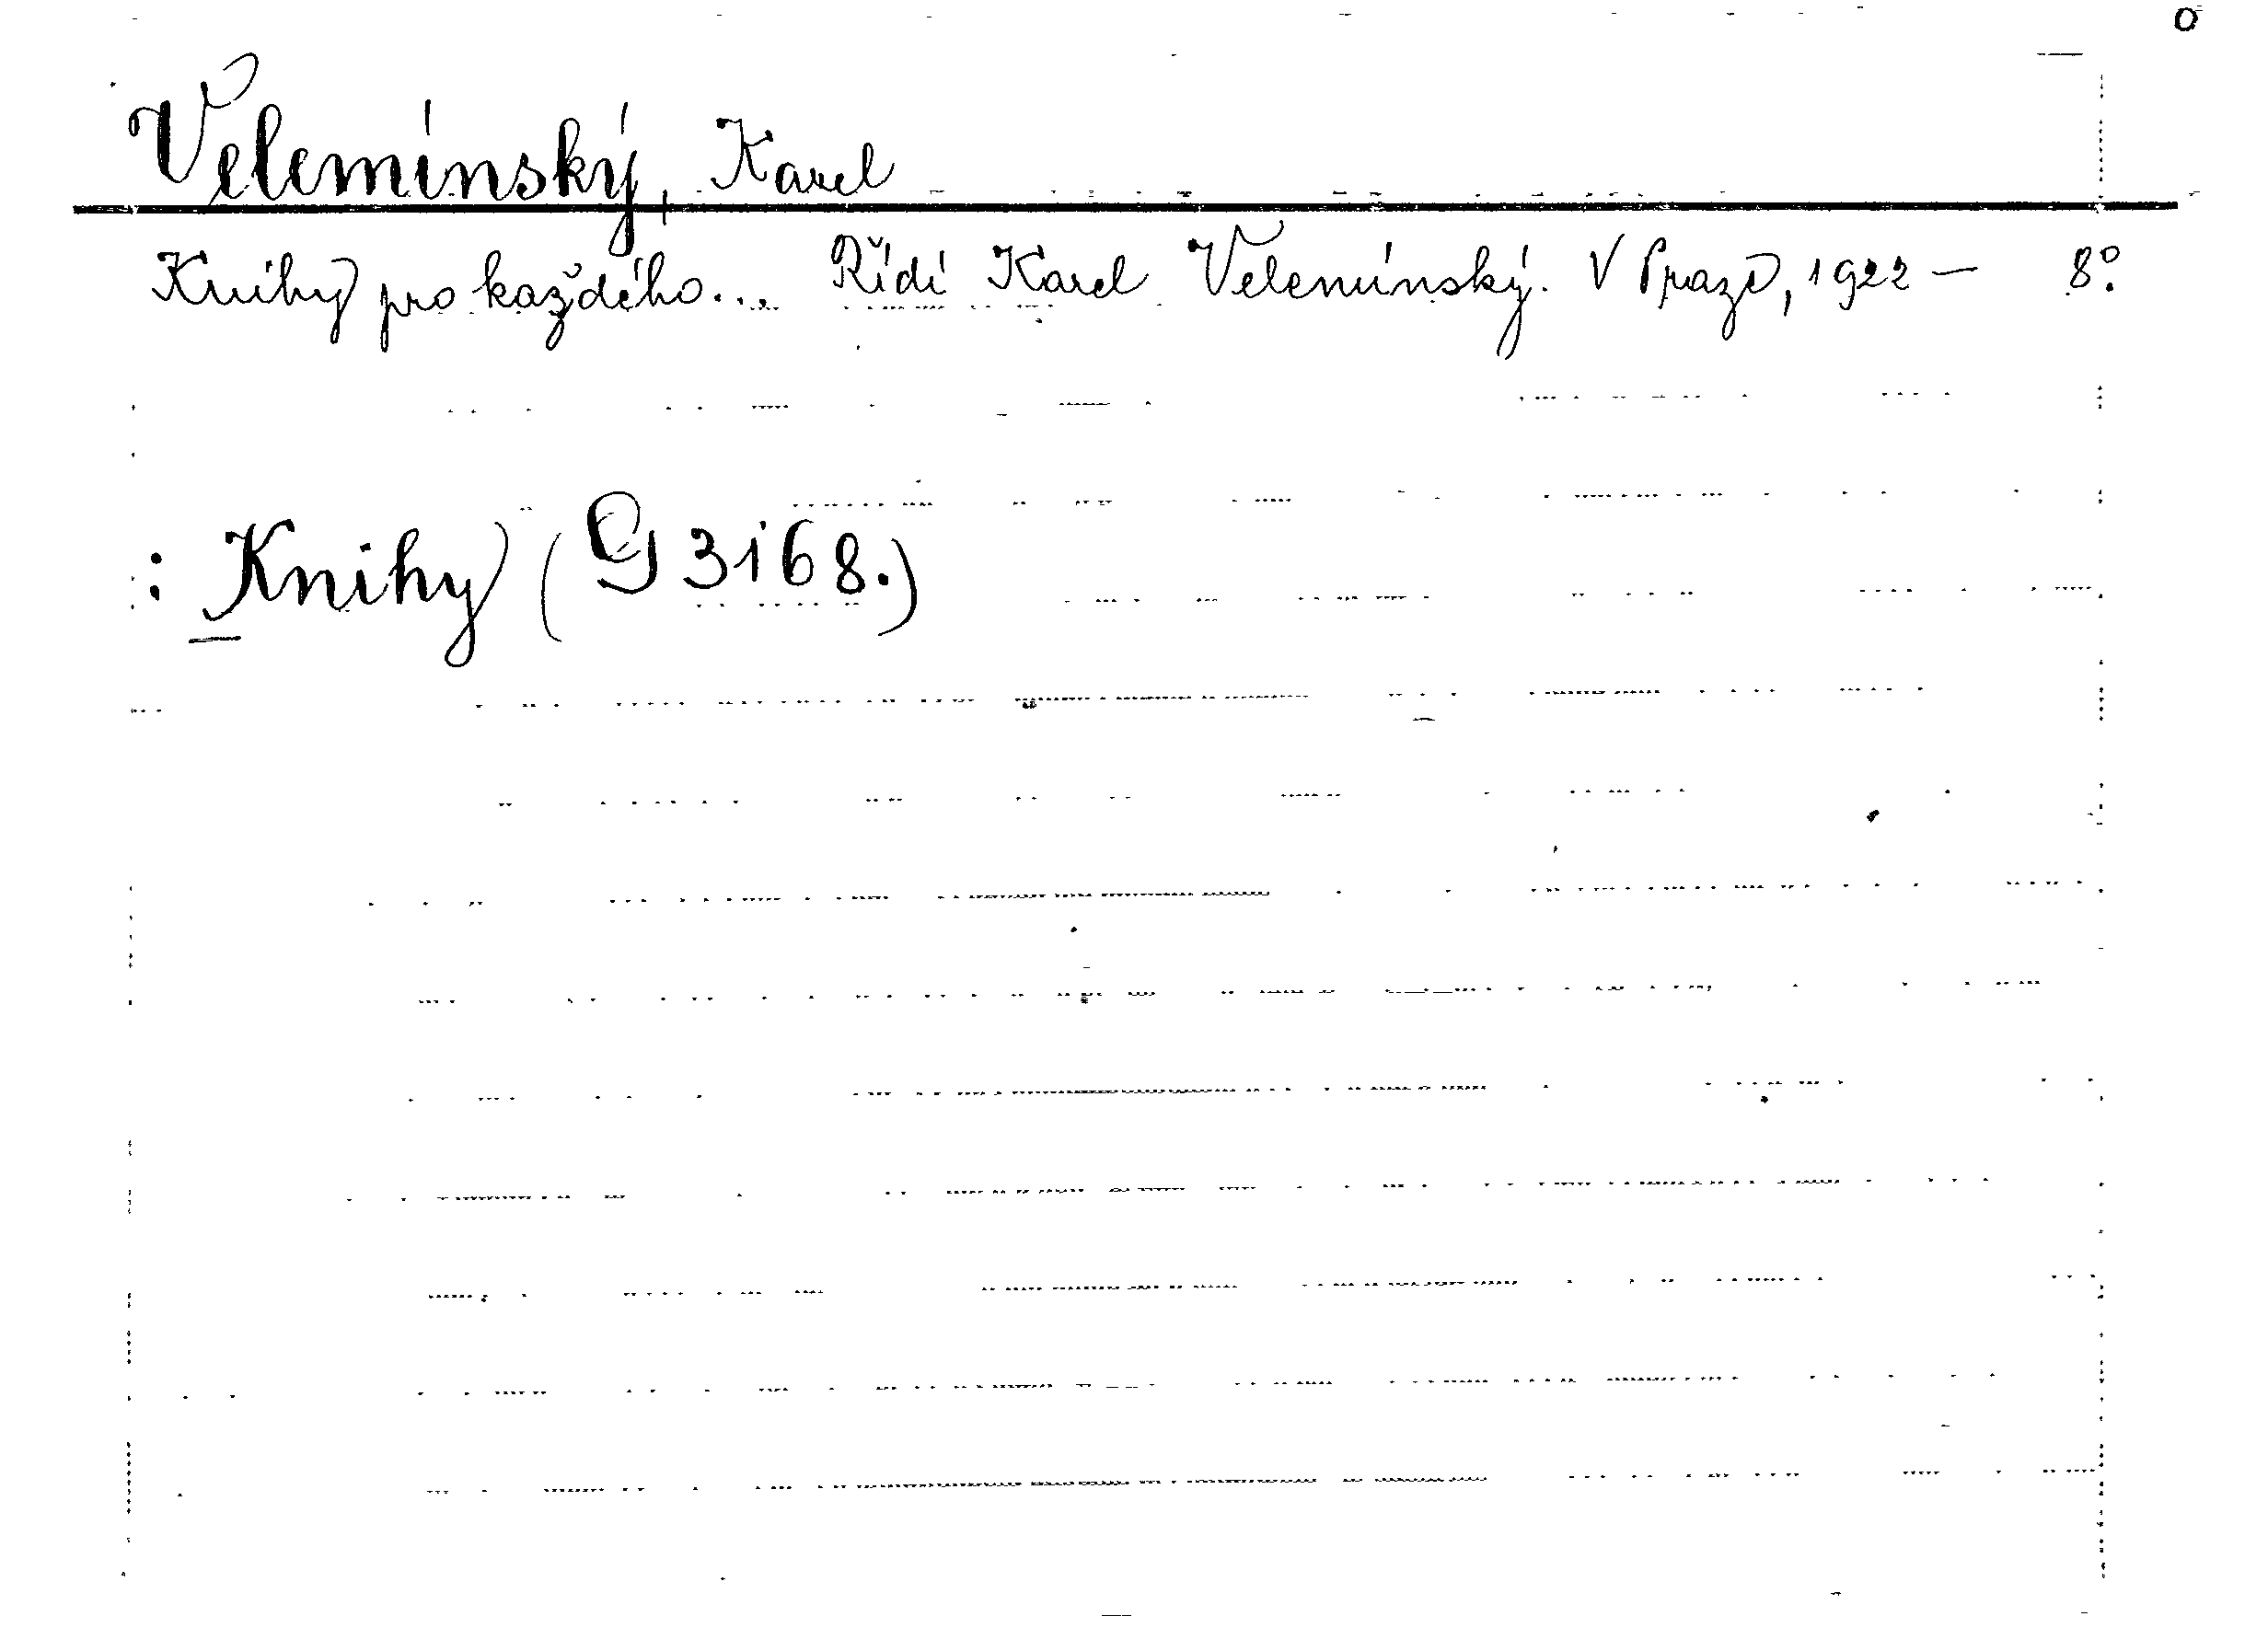 o
Velemínský, Karel
Knihy pro každého... Řídí Karel Velemínský. V Praze, 1922 — 8°.
: Knihy (G 3168.)